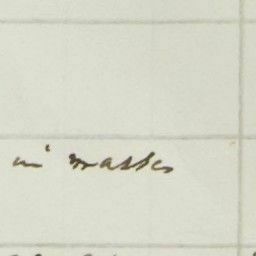 in masses